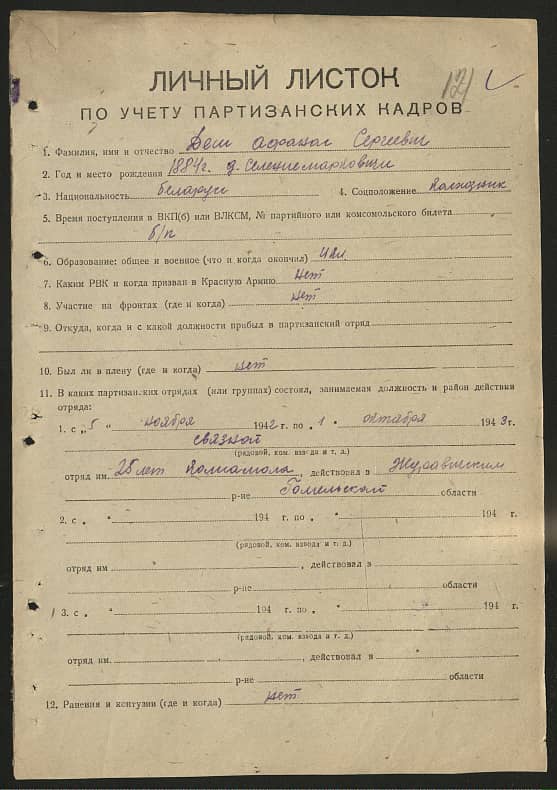 ЛИЧНЫЙ ЛИСТОК
ПО УЧЕТУ ПАРТИЗАНСКИХ КАДРОВ
1. Фамилия, имя и отчество Деш Афанас Сергеевич
2. Год и место рождения 1884г. д.
3. Национальность беларус 4. Соцположение колхозник
5. Время поступления в ВКП(б) или ВЛКСМ, № партийного или комсомольского билета
б/п
6. Образование: общее и военное (что и когда окончил) 4 кл
7. Каким РВК и когда призван в Красную Армию нет
8. Участие на фронтах (где и когда) нет
9. Откуда, когда и с какой должности прибыл в партизанский отряд
10. Был ли в плену (где и когда) нет
11. В каких партизанских отрядах (или группах) состоял, занимаемая должность и район действия
отряда:
1. с „5 “ ноября 1942 г. по „1 “ октября 1943г.
связной
(рядовой, ком. взвода и т. д.)
отряд им. 25 лет Комсомола, действовал в Журавичским
р-не Гомельской области
2. с „ “ 194 г. по „ “ 194 г.
(рядовой, ком. взвода и т. д.)
отряд им , действовал в
р-не области
3. с „ “ 194 г. по „ “ 194 г.
(рядовой, ком. взвода и т. д.)
отряд им. , действовал в
р-не области
12. Ранения и контузии (где и когда) нет